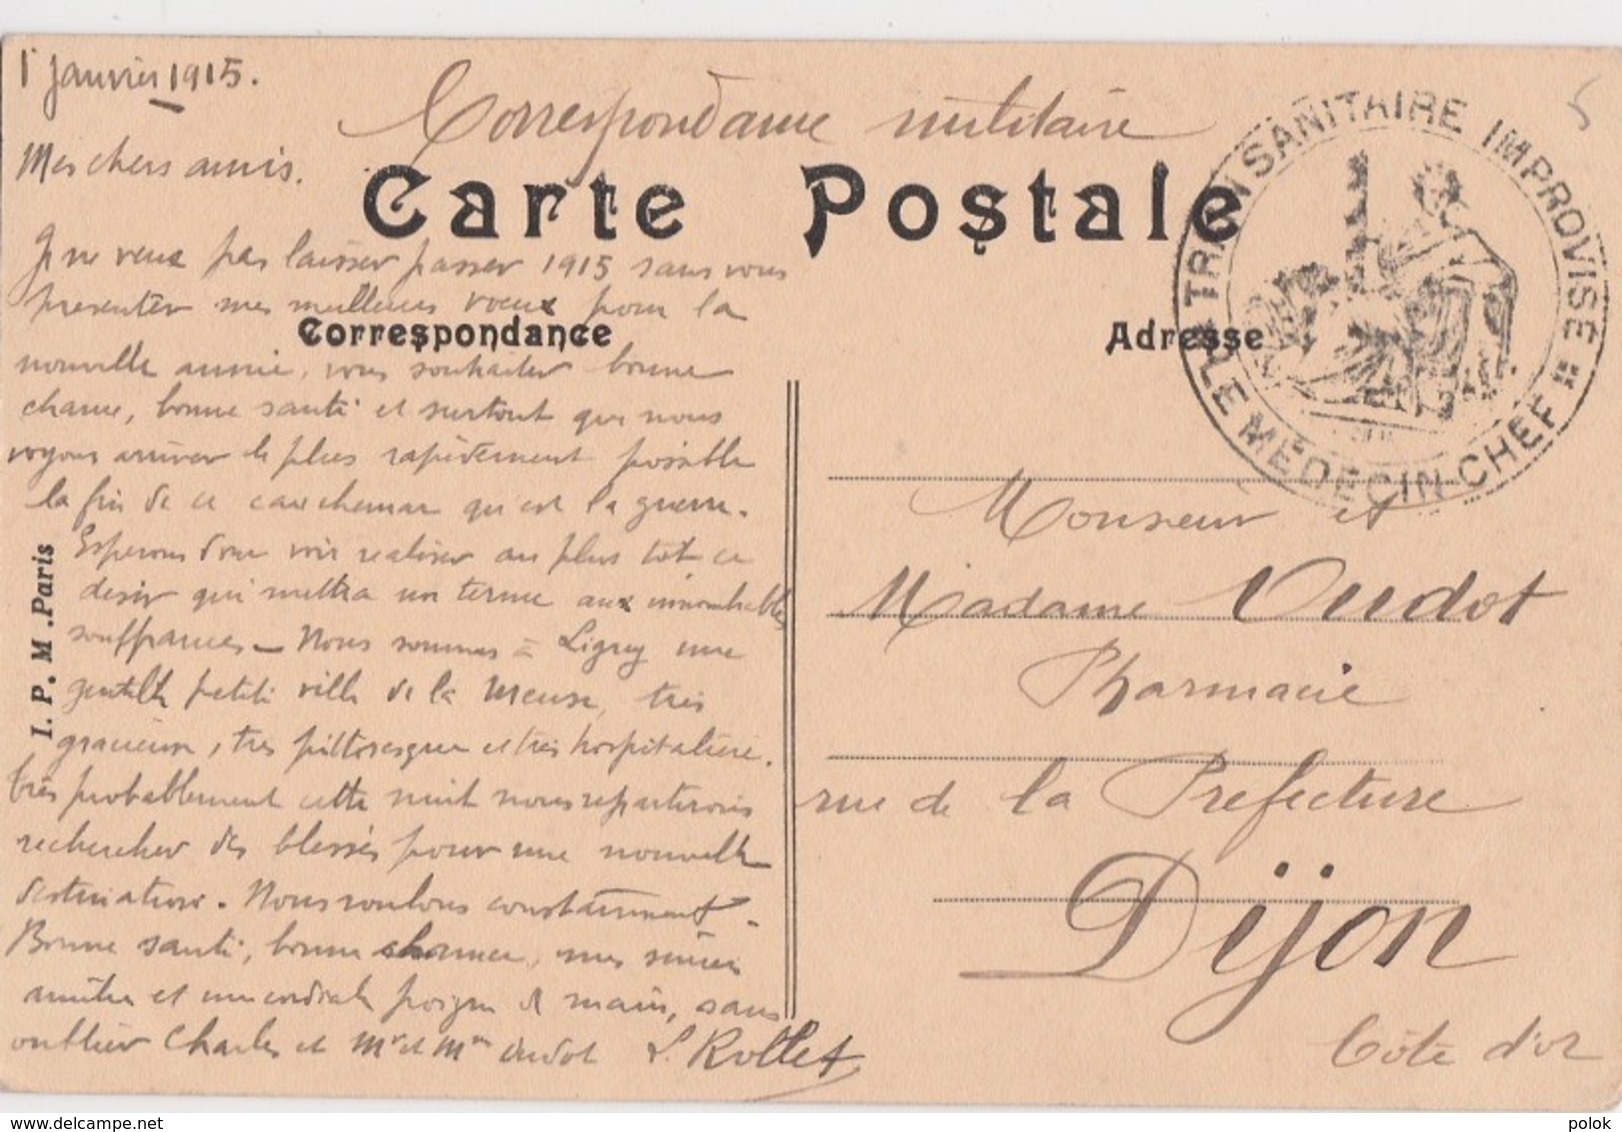 1r janvier 1915.
Correspondance militaire
5
Mes chers amis.
Carte Postale
TRAIN SANITAIRE IMPROVISÉ
LE MÉDECIN-CHEF
Je ne veux pas laisser passer 1915 sans vous
presenter mes meilleurs voeux pour la
Correspondance
Adresse
nouvelle année, vous souhaiter bonne
chance, bonne santé et surtout que nous
voyons arriver le plus rapidement possible
la fin de ce cauchemar qu'est la guerre.
Esperons donc voir realiser au plus tôt ce
desir qui mettra un terme aux innombrables
souffrances - Nous sommes à Ligny une
gentille petite ville de la Meuse, très
gracieuse, très pittoresque et très hospitalière.
très probablement cette nuit nous repartirons
rechercher des blessés pour une nouvelle
destination. Nous roulons constamment.
Bonne santé, bonne chance, mes sincères
amitiés et une cordiale poignée de main, sans
oublier Charles et Mr et Mme Oudot L. Rollet
I. P. M. Paris
Monsieur et
Madame Oudot
Pharmacie
rue de la Prefecture
Dijon
Côte d'or
delcampe.net
polok